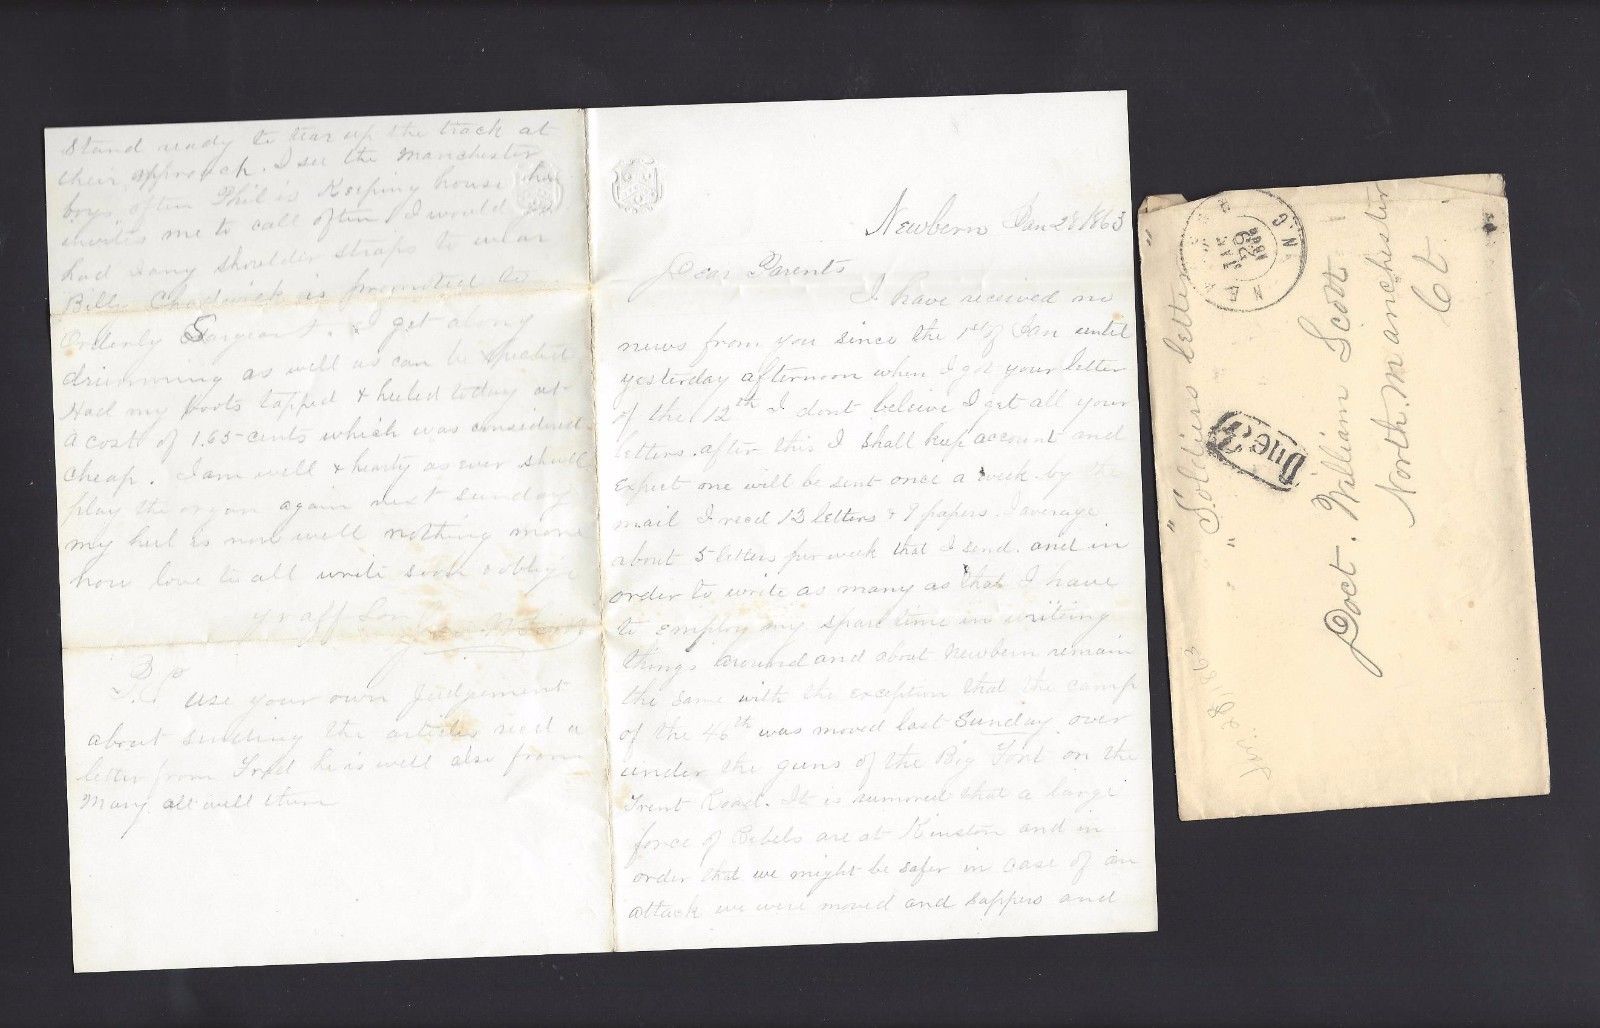 Newbern Jan 28 1863
Dear Parents
I have received no
news from you since the 1st of Jan until
yesterday afternoon when I got your letter
of the 12th I dont beleive I get all your
letters. after this I shall keep account and
expect one will be sent once a week. by the
mail I recd 13 letters & 9 papers. I average
about 5 letters per week that I send. and in
order to write as many as that I have
to employ my spare time in writing
things around and about Newbern remain
the same with the exception that the camp
of the 46th was moved last Sunday over
under the guns of the Big Fort on the
Trent Road. It is rumored that a large
force of Rebels are at Kinston and in
order that we might be safer in case of an
attack we were moved and sappers and
Stand ready to tear up the track at
their approach. I see the Manchester
boys often Phil is Keeping house he
invites me to call often I would
had I any shoulder straps to wear
Billy Chadwick is promoted to
Orderly Sargeant. I get along
drumming as well as can be expected
Had my boots tapped & heeled today at
a cost of 1.65 cents which was considered
cheap. I am well & hearty as ever shall
play the organ again next sunday
my heel is now well nothing more
now love to all write soon & oblige
yr aff Son
P.S. use your own Judgement
about sending the articles recd a
letter from Fred he is well also from
Mary all well there
"Soldiers letter"
N.C.
JAN
29
1863
Due 3
Doct. William Scott
North. Manchester
Ct.
Jan. 28, 1863